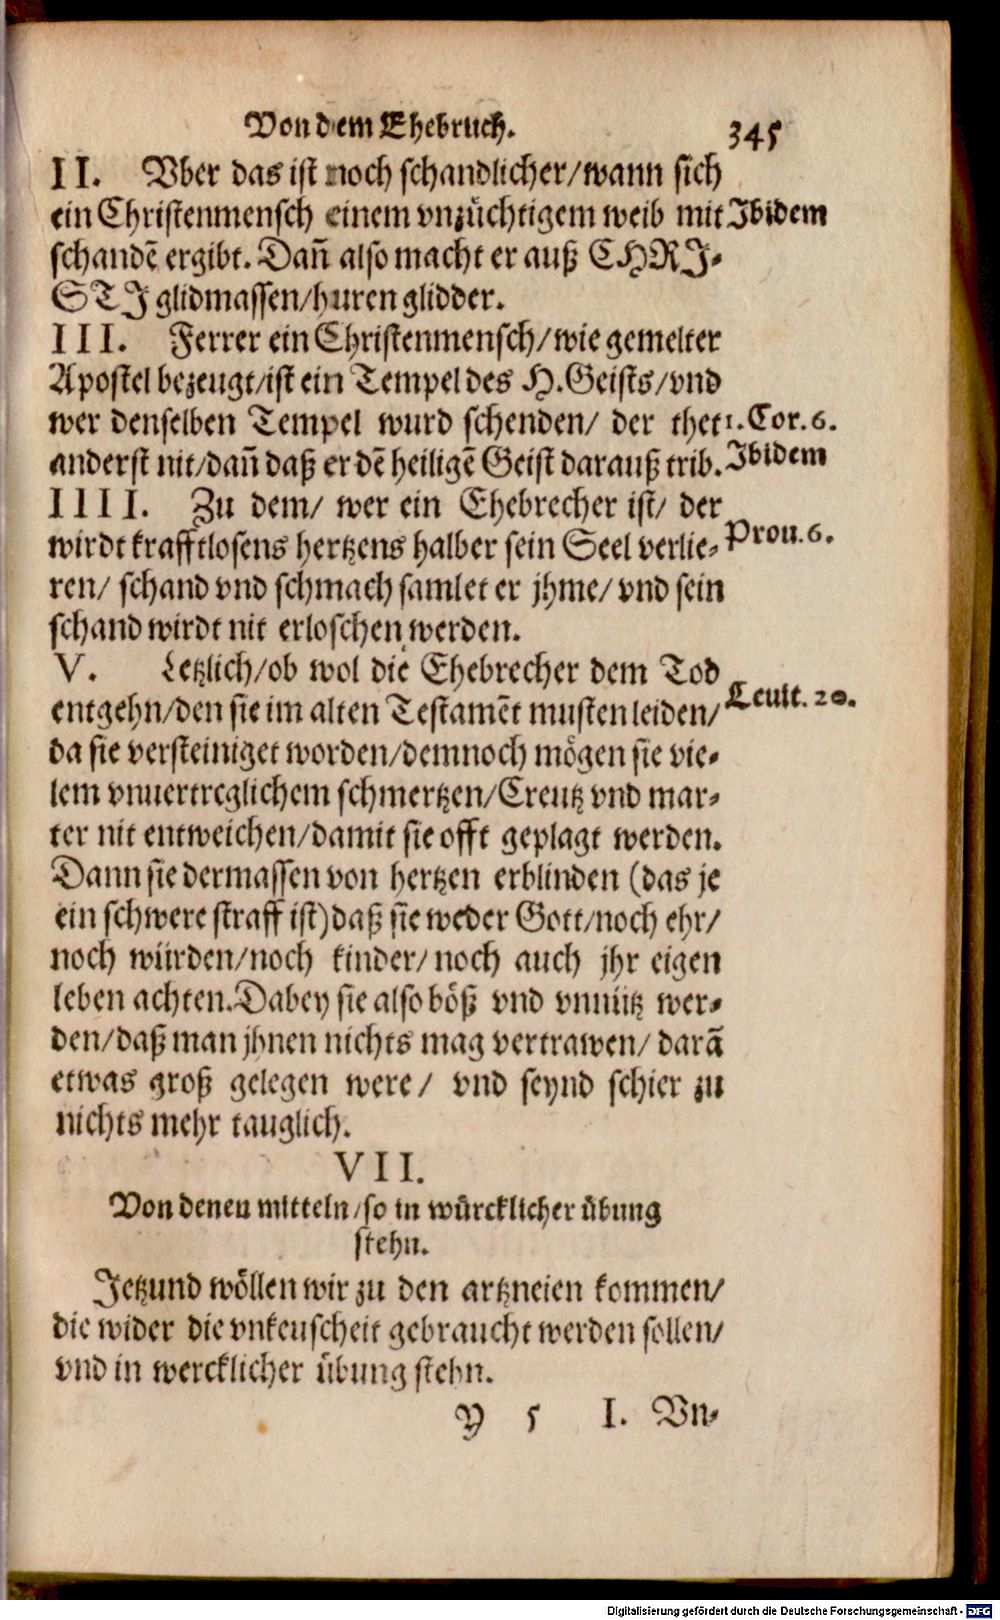 Von dem Ehebruch. 345
II. Vber das ist noch schandlicher/wann sich
ein Christenmensch einem vnzüchtigem weib mit Ibidem
schandē ergibt. Dañ also macht er auß CHRI-
STI glidmassen/huren glidder.
III. Ferrer ein Christenmensch/wie gemelter
Apostel bezeugt/ist ein Tempel des H. Geists/vnd
wer denselben Tempel wurd schenden/ der thet 1. Cor. 6.
anderst nit/dañ daß er dē heiligē Geist darauß trib. Ibidem
IIII. Zu dem/ wer ein Ehebrecher ist/ der
wirdt krafftlosens hertzens halber sein Seel verlie- Prou. 6.
ren/ schand vnd schmach samlet er jhme/ vnd sein
schand wirdt nit erloschen werden.
V. Letzlich/ob wol die Ehebrecher dem Tod
entgehn/den sie im alten Testamēt musten leiden/ Leuit. 20.
da sie versteiniget worden/demnoch mögen sie vie-
lem vnuertreglichem schmertzen/Creutz vnd mar-
ter nit entweichen/damit sie offt geplagt werden.
Dann sie dermassen von hertzen erblinden (das je
ein schwere straff ist) daß sie weder Gott/noch ehr/
noch würden/noch kinder/noch auch jhr eigen
leben achten. Dabey sie also böß vnd vnnütz wer-
den/daß man jhnen nichts mag vertrawen/ darā
etwas groß gelegen were/ vnd seynd schier zu
nichts mehr tauglich.
VII.
Von denen mitteln/so in würcklicher übung
stehn.
Jetzund wöllen wir zu den artzneien kommen/
die wider die vnkeuscheit gebraucht werden sollen/
vnd in wercklicher übung stehn.
Y 5 I. Vn-
Digitalisierung gefördert durch die Deutsche Forschungsgemeinschaft - DFG